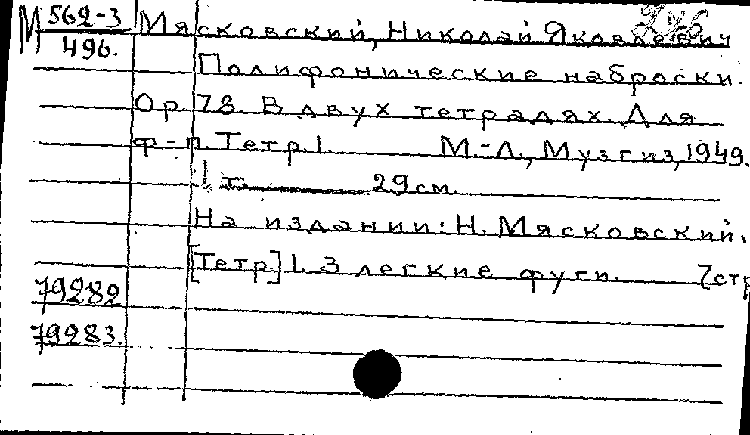 М 562-3
496.
Мясковский, Николай Яковлевич
Полифонические наброски.
Ор. 78. В двух тетрадях. Для
ф-п. Тетр. 1. М.-Л., Музгиз, 1949.
1 т. 29 см.
На издании: Н. Мясковский.
[Тетр.] 1. 3 легкие фуги. 7 стр
79282
79283.